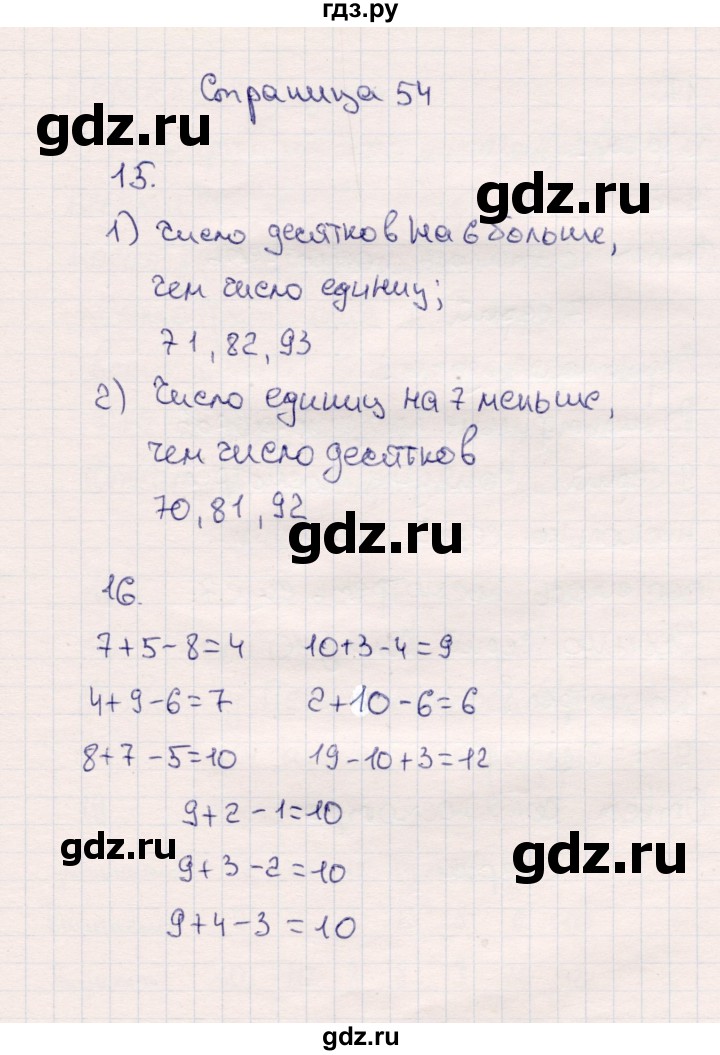 гдз.ру
Страница 54
gdz.ru
15.
gdz.ru
1) Число десятков на 6 больше,
чем число единиц;
71, 82, 93
2) Число единиц на 7 меньше,
чем число десятков
70, 81, 92
gdz.ru
16.
7+5-8=4 10+3-4=9
4+9-6=7 2+10-6=6
8+7-5=10 19-10+3=12
9+2-1=10
gdz.ru
9+3-2=10
gdz.ru
9+4-3=10
gdz.ru